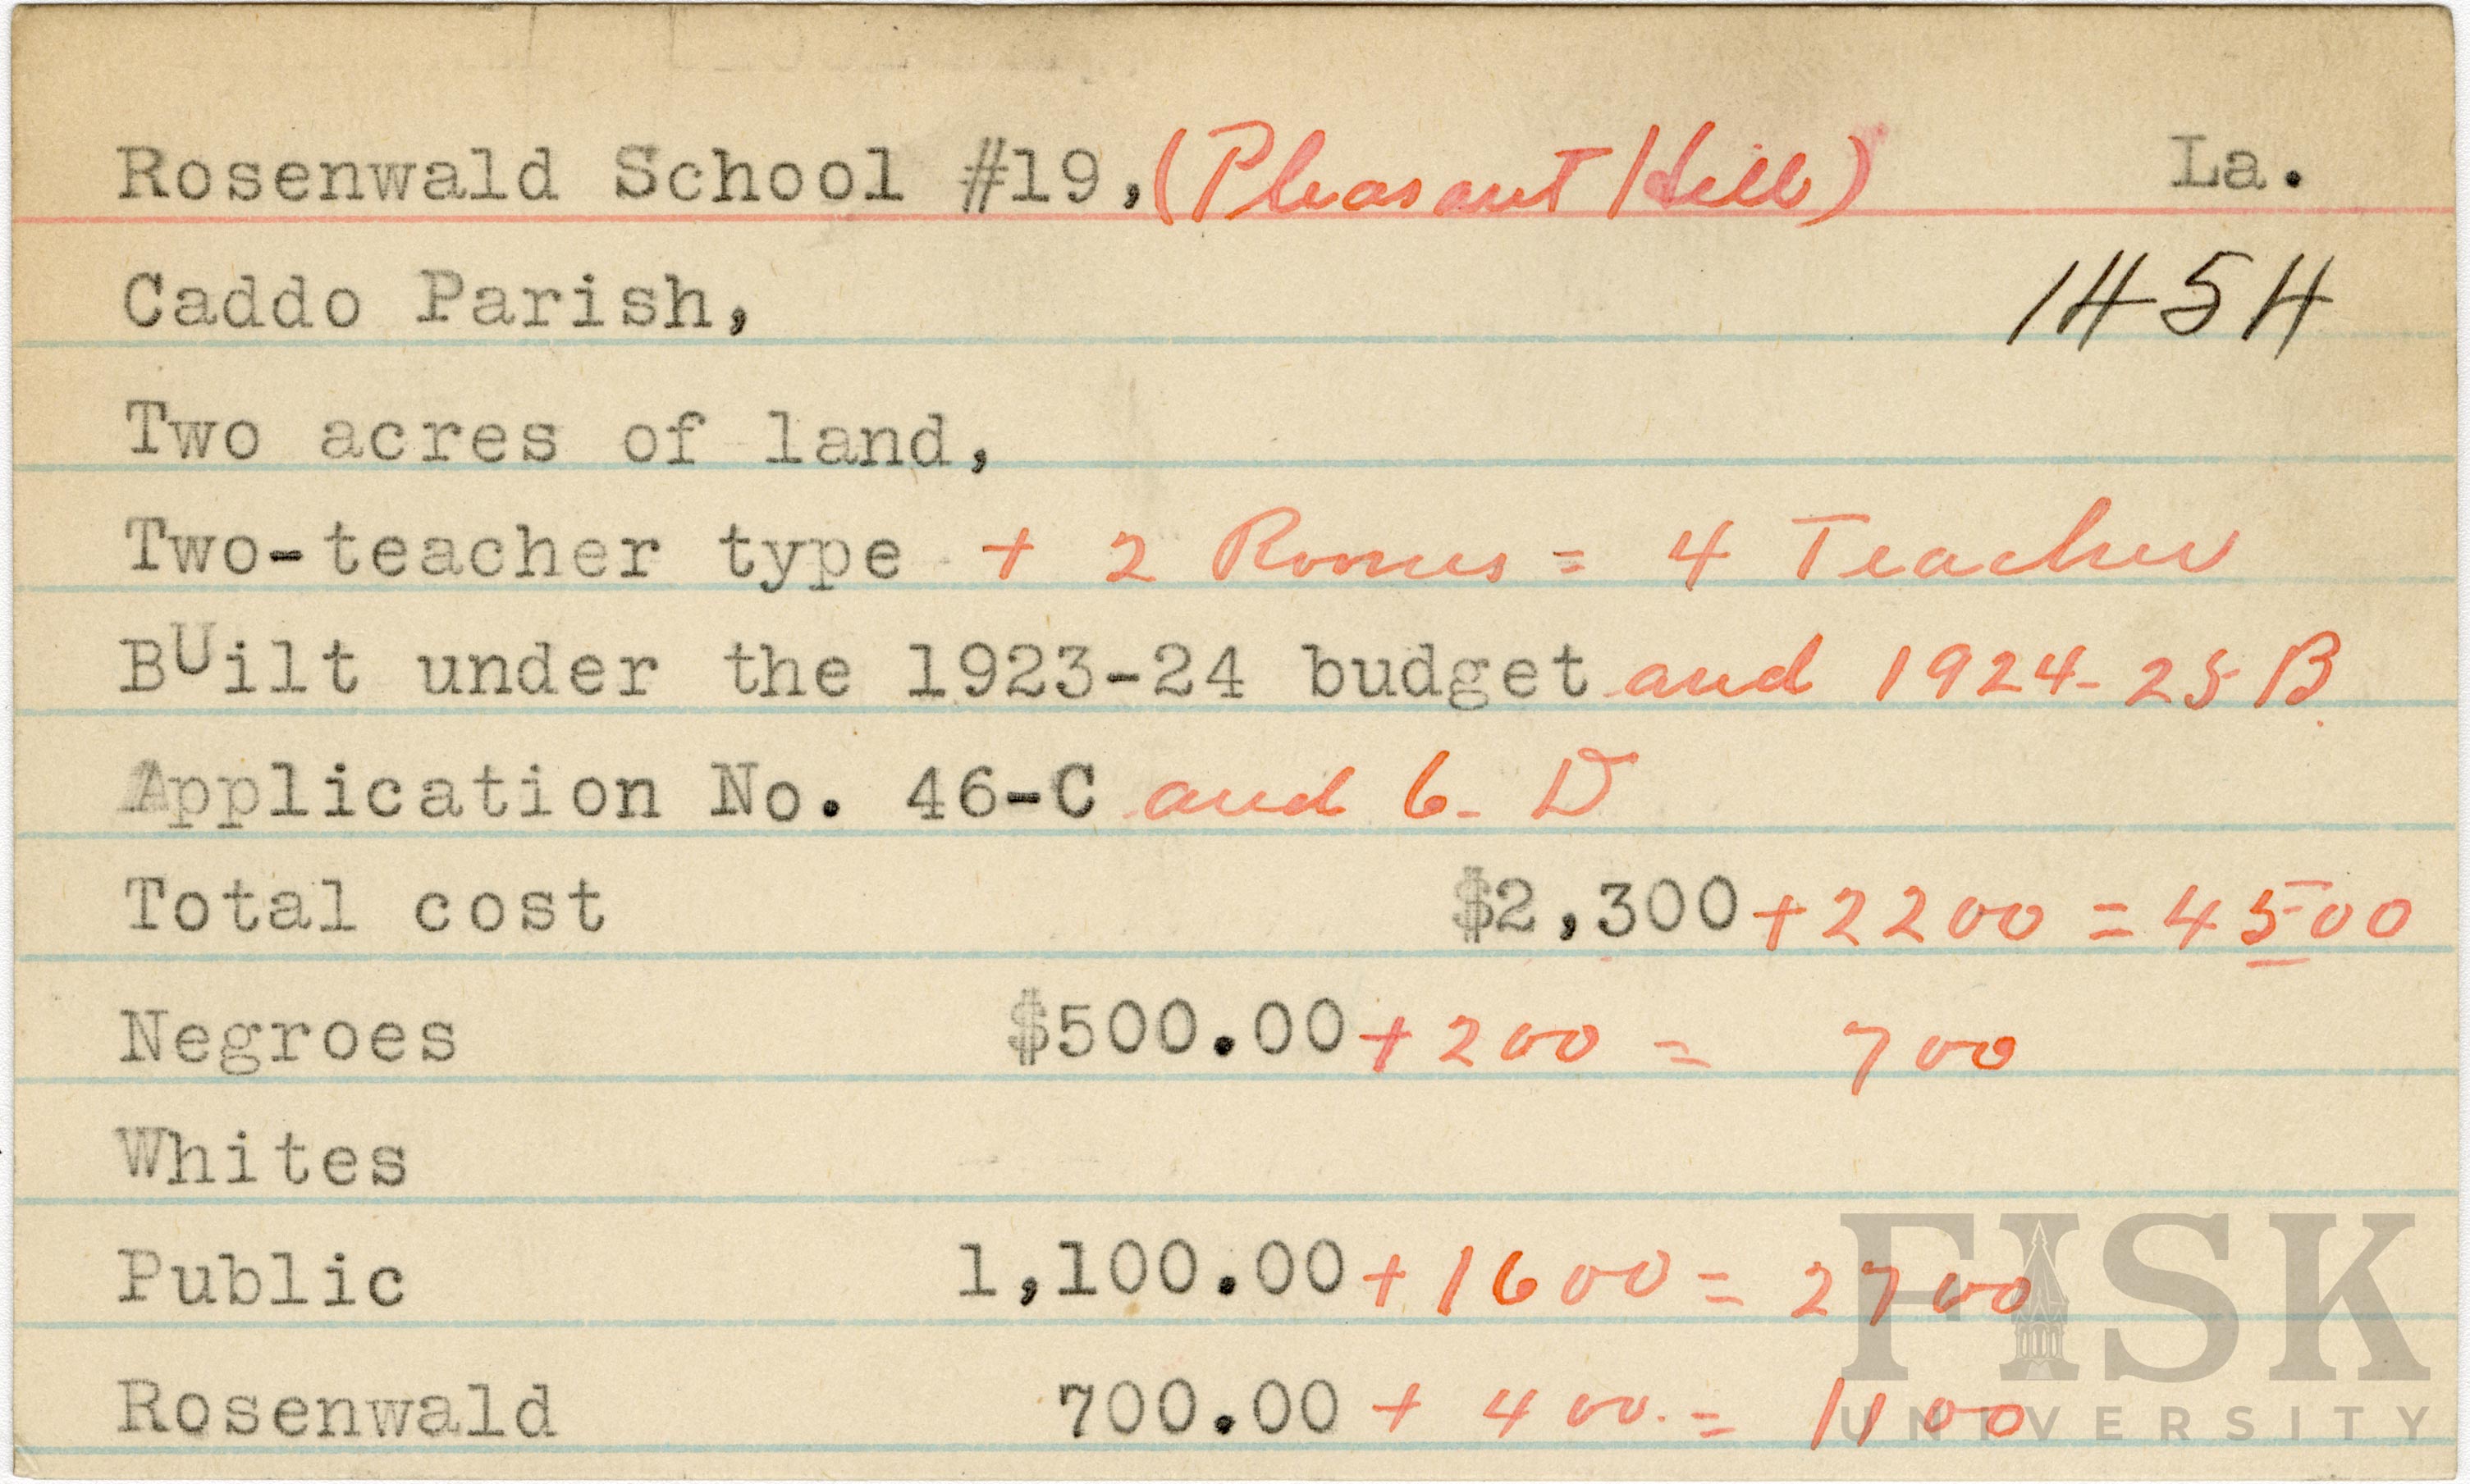 Rosenwald School #19, (Pleasant Hill) La.
Caddo Parish, 1454
Two acres of land,
Two-teacher type + 2 Rooms = 4 Teacher
BUilt under the 1923-24 budget and 1924-25 B
Application No. 46-C and 6-D
Total cost $2,300 + 2200 = 4500
Negroes $500.00 + 200 = 700
Whites
Public 1,100.00 + 1600 = 2700
Rosenwald 700.00 + 400. = 1100
FISK
UNIVERSITY